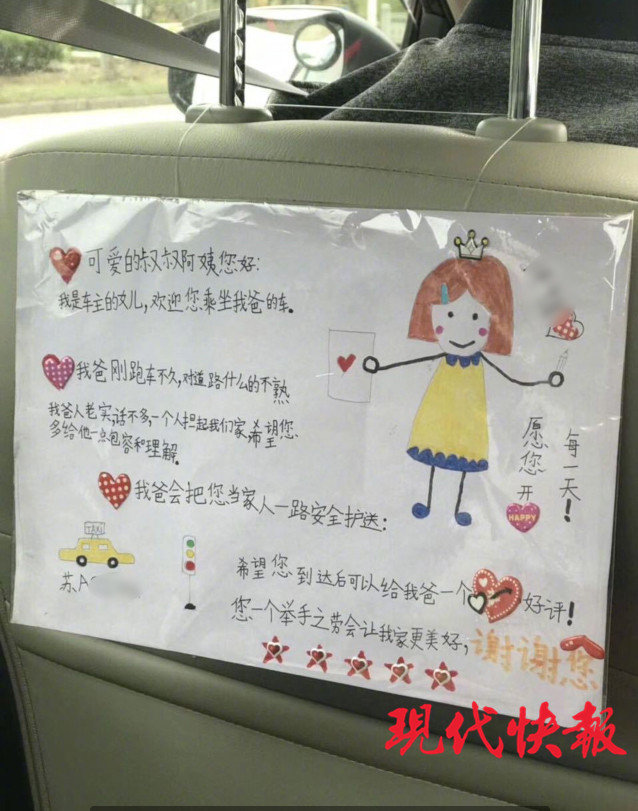 可爱的叔叔阿姨您好:
我是车主的女儿,欢迎您乘坐我爸的车.
我爸刚跑车不久,对道路什么的不熟
我爸人老实,话不多,一个人担起我们家希望您
多给他一点包容和理解.
我爸会把您当家人一路安全护送:
愿您开
HAPPY
每一天!
TAXI
苏A
希望您到达后可以给我爸一个好评!
您一个举手之劳会让我家更美好,谢谢您
现代快報